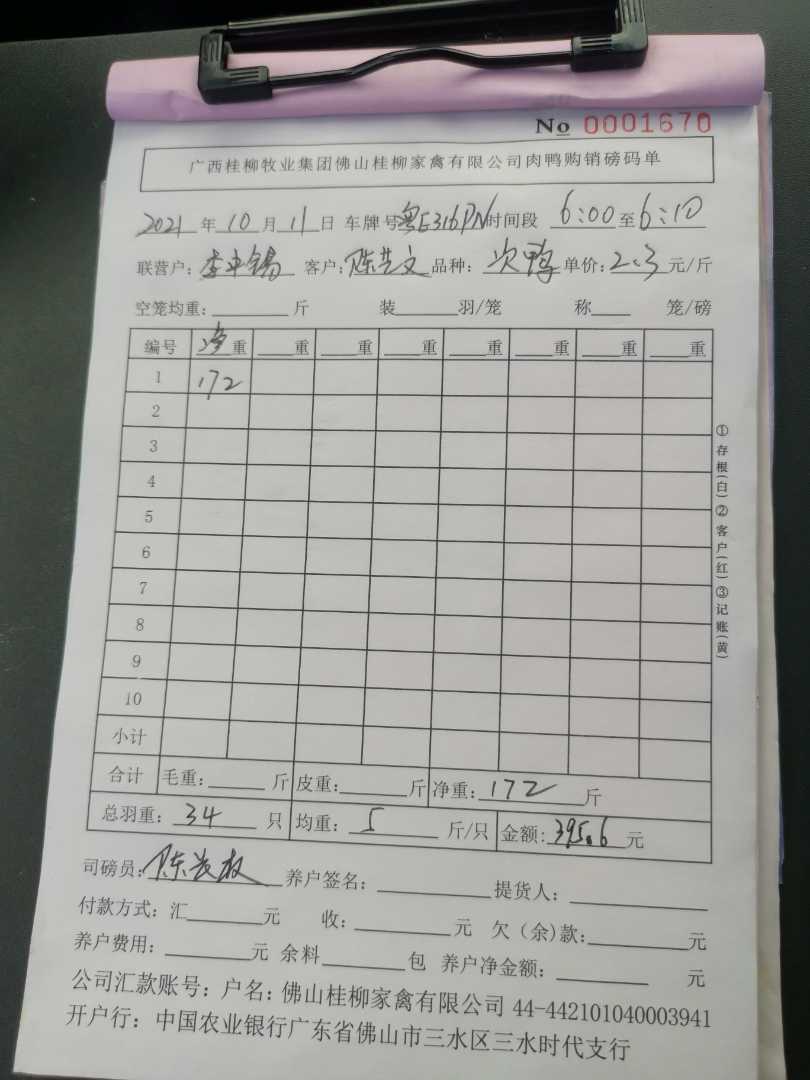 No 0001670
广西桂柳牧业集团佛山桂柳家禽有限公司肉鸭购销磅码单
2021年10月11日 车牌号粤E316PN时间段 6:00至6:10
联营户:李平锡 客户:陈艺文 品种:次鸭 单价:2.3元/斤
空笼均重:____斤 装____羽/笼 称____笼/磅
编号 净重 __重 __重 __重 __重 __重 __重 __重
1 172
2
3
4
5
6
7
8
9
10
小计
合计 毛重:____斤 皮重:____斤 净重:172斤
总羽重:34只 均重:5斤/只 金额:395.6元
司磅员:陈 养户签名:____ 提货人:____
付款方式:汇____元 收:____元 欠(余)款:____元
养户费用:____元 余料____包 养户净金额:____元
公司汇款账号:户名:佛山桂柳家禽有限公司 44-442101040003941
开户行:中国农业银行广东省佛山市三水区三水时代支行
①存根(白)②客户(红)③记账(黄)